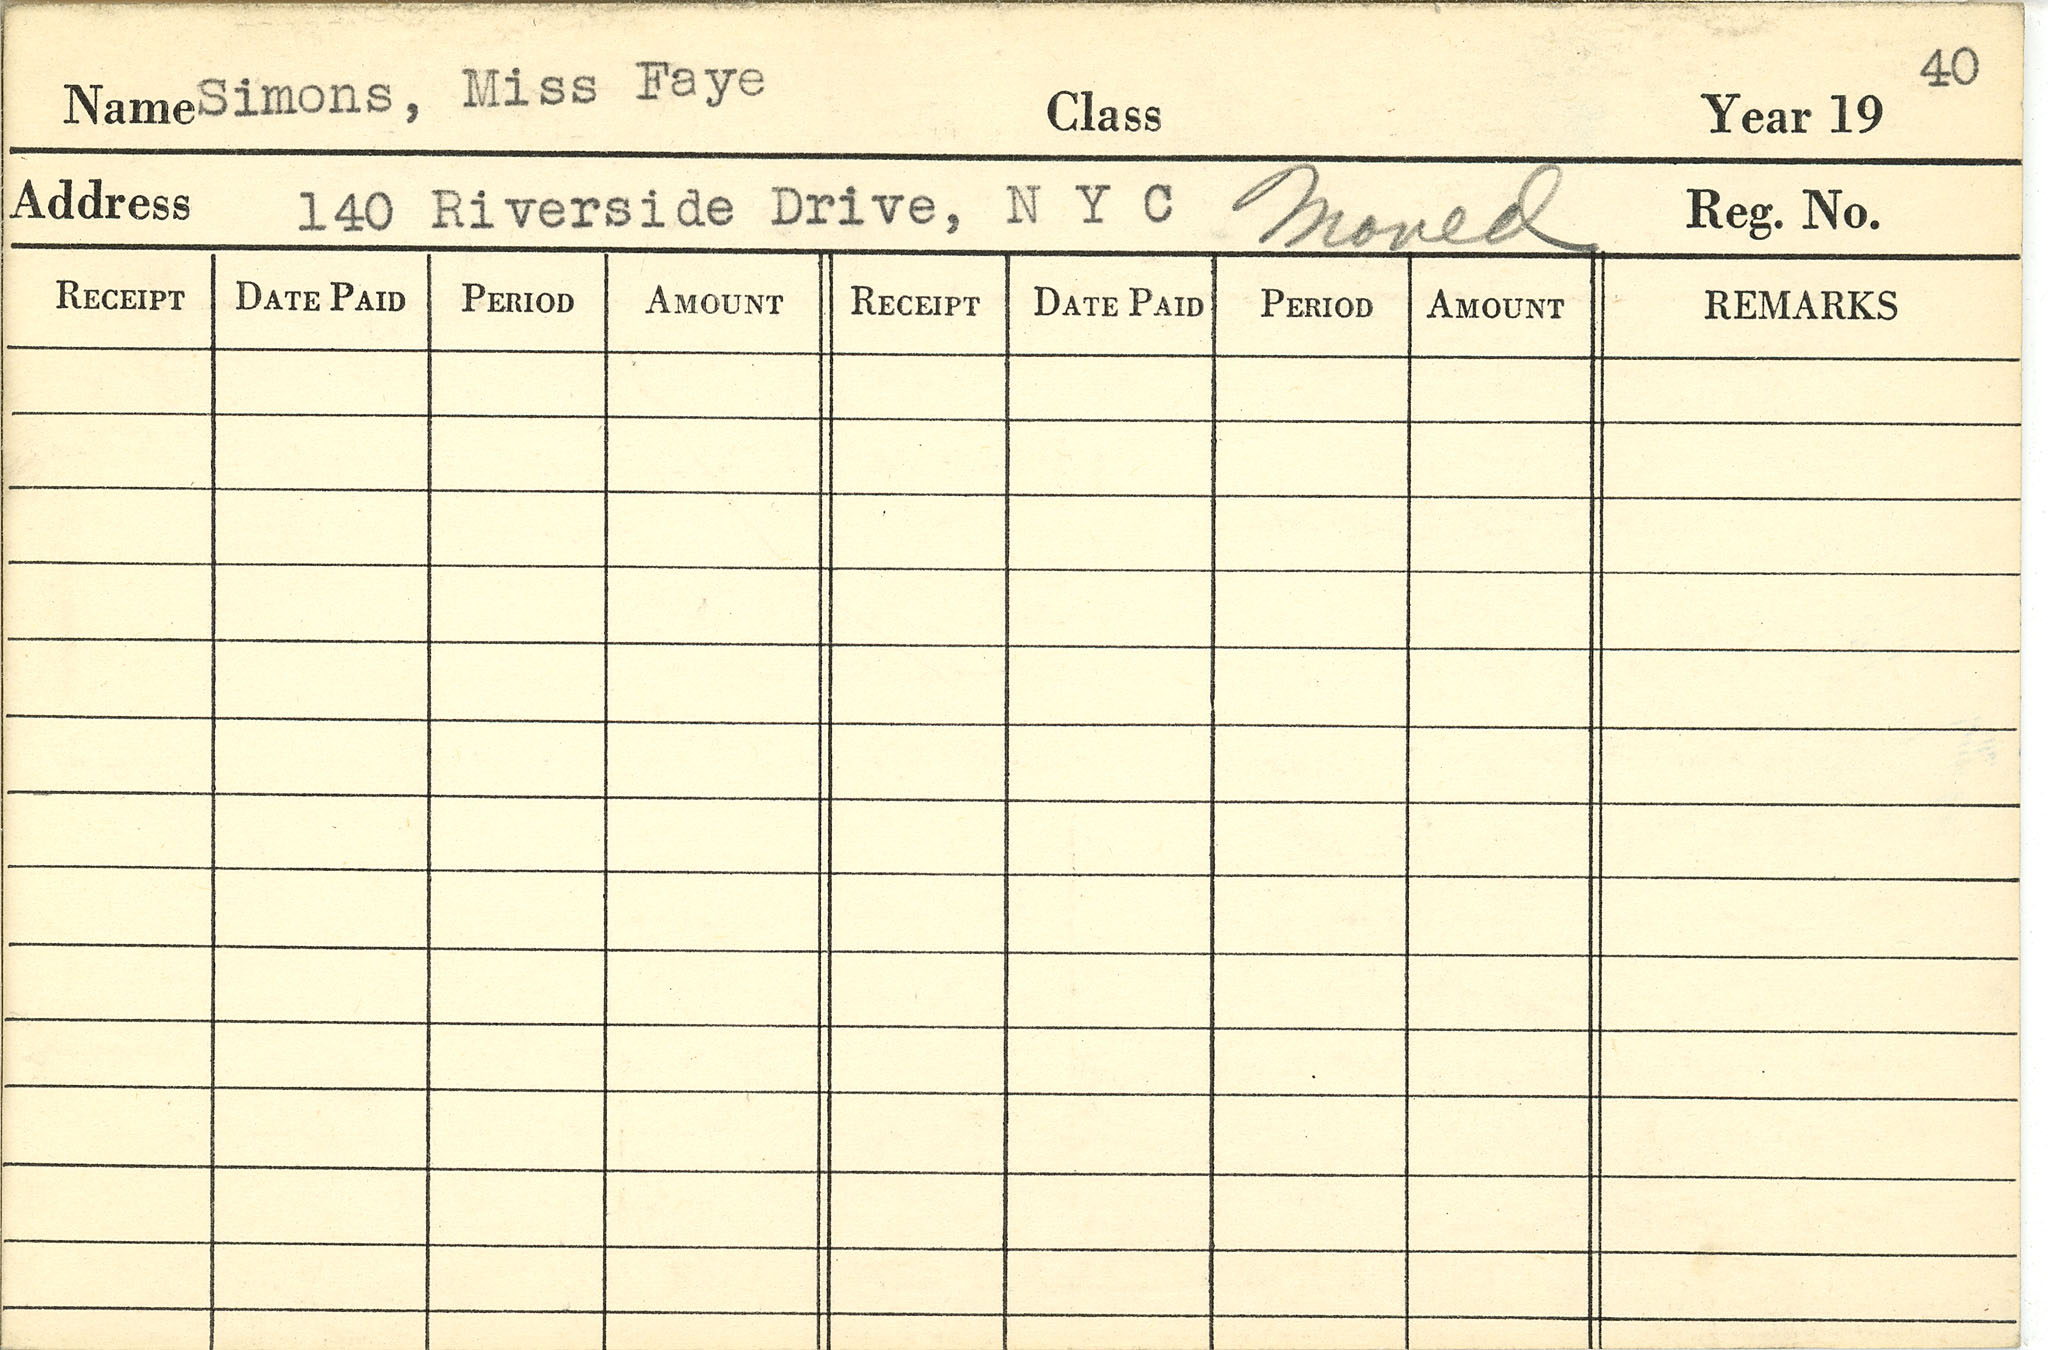 Name Simons, Miss Faye Class Year 19 40
Address 140 Riverside Drive, N Y C Moved Reg. No.
RECEIPT DATE PAID PERIOD AMOUNT RECEIPT DATE PAID PERIOD AMOUNT REMARKS